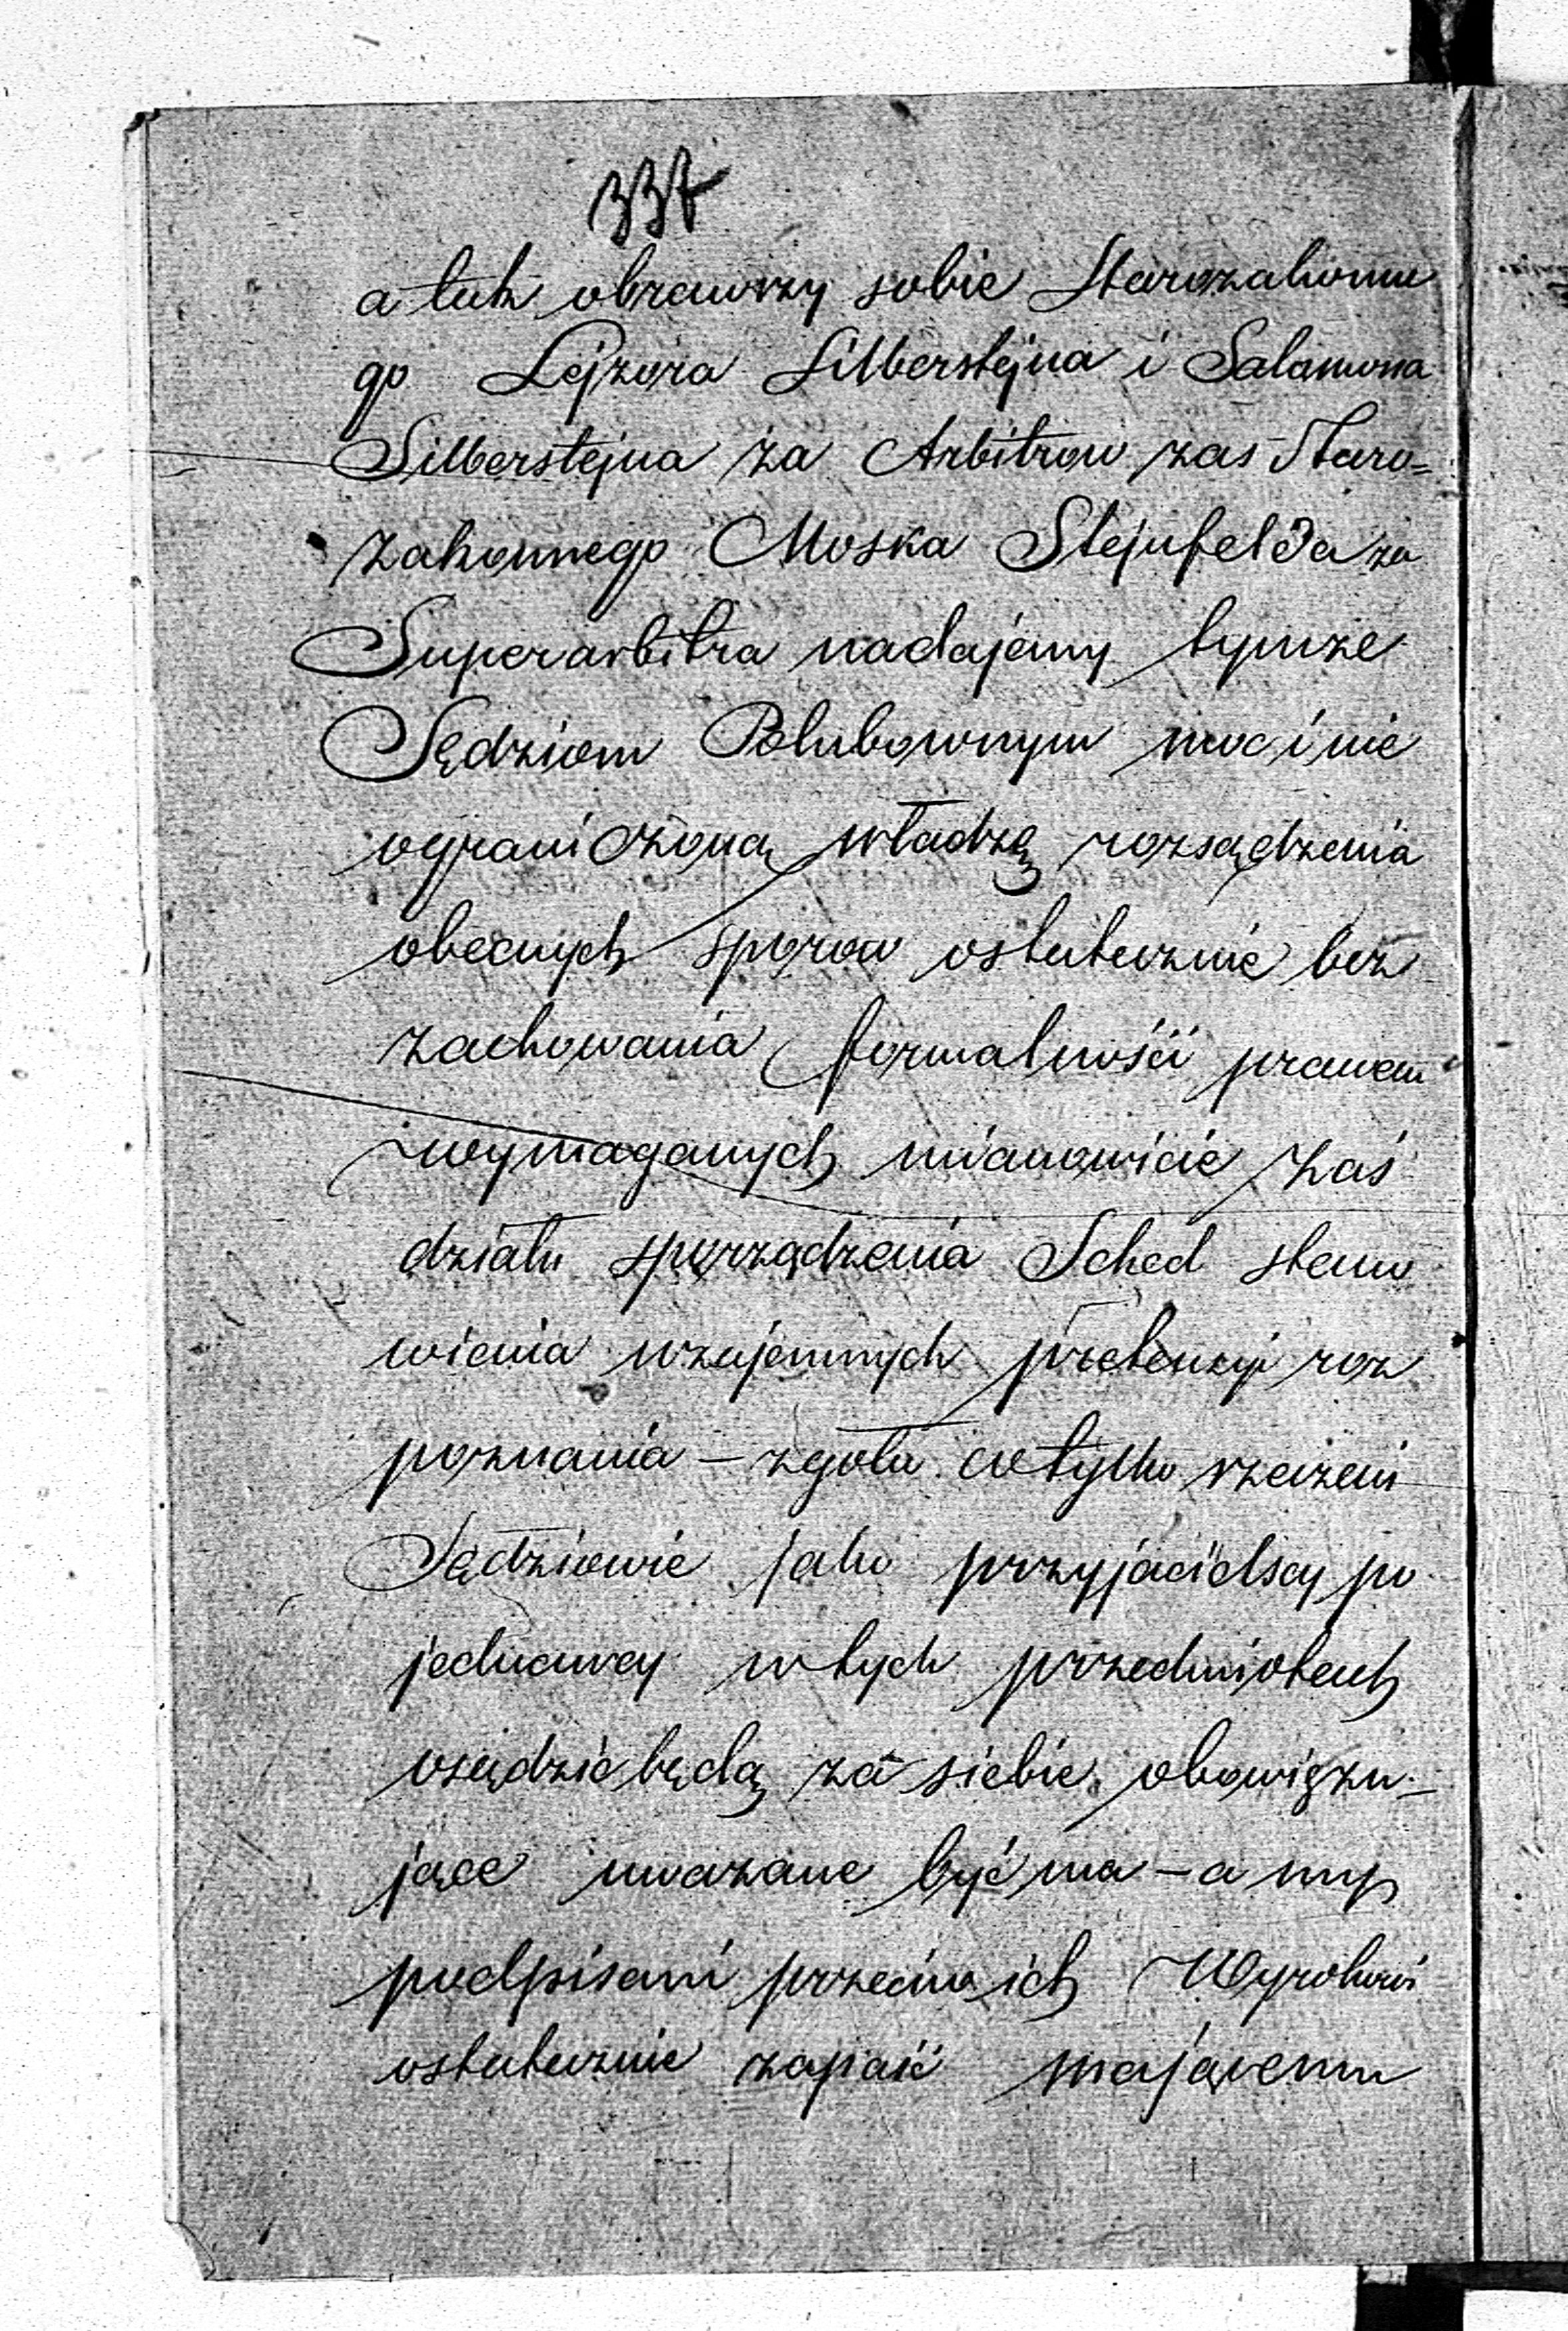 337
a tak obrawszy sobie Starozakonne
go Lejzora Silberstejna i Salamona
Silberstejna za Arbitrow zas Staro=
zakonnego Moska Stejnfelda za
Superarbitra nadajemy tymże
Sędziom Polubownym moc i nie
ograniczoną władzę rozsądzenia
obecnych sporow ostatecznie bez
zachowania formalności prawem
wymaganych mianowicie zaś
działu sporządzenia Sched stano
wienia wzajemnych pretensyi roz
poznania – zgoła cotylko rzeczeni
Sędziowie jako przyjacielscy po
jednawcy w tych przedmiotach
osądzić będą za siebie obowiązu–
jące uważane być ma – a my
podpisani przeciw ich Wyrokowi
ostatecznie zapaść mającemu